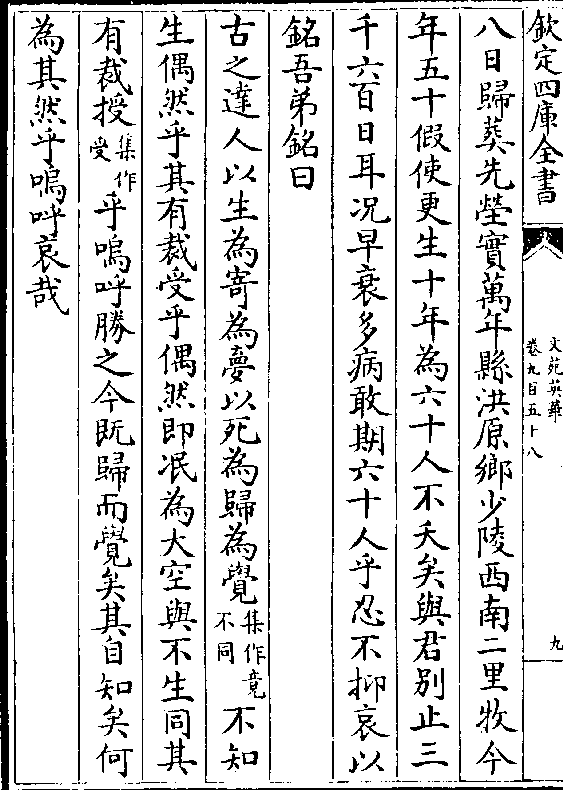 欽定四庫全書
文苑英華
卷九百五十八
九
八日歸葬先塋實萬年縣洪原鄉少陵西南二里牧今
年五十假使更生十年為六十人不夭矣與君别止三
千六百日耳况早衰多病敢期六十人乎忍不抑哀以
銘吾弟銘曰
古之達人以生為寄為夢以死為歸為覺集作竟不同不知
生偶然乎其有裁受乎偶然即冺為大空與不生同其
有裁授集作受乎嗚呼勝之今既歸而覺矣其自知矣何
為其然乎嗚呼哀哉